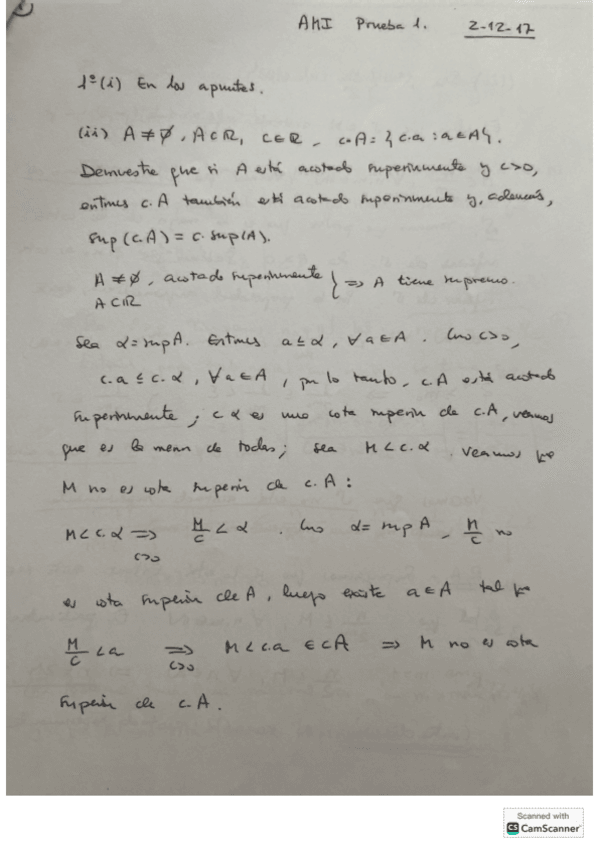 AMI Prueba 1. 2-12-17
1º(i) En los apuntes.
(ii) A≠∅, A⊂ℝ, c∈ℝ, c·A = {c·a : a∈A}.
Demuestre que si A está acotado superiormente y c>0,
entonces c.A también está acotado superiormente y, además,
sup(c.A) = c.sup(A).
A≠∅, acotado superiormente } ⇒ A tiene supremo.
A⊂ℝ
Sea α = sup A. Entonces a ≤ α, ∀a∈A. Como c>0,
c.a ≤ c.α, ∀a∈A, por lo tanto, cA está acotado
superiormente; cα es una cota superior de c.A, veamos
que es la menor de todas; sea M < c.α. Veamos que
M no es cota superior de c.A:
M < c.α ⇒ M/c < α. Como α = sup A, M/c no
c>0
es cota superior de A, luego existe a∈A tal que
M/c < a ⇒ M < c.a ∈ cA ⇒ M no es cota
c>0
superior de c.A.
Scanned with
CS CamScanner